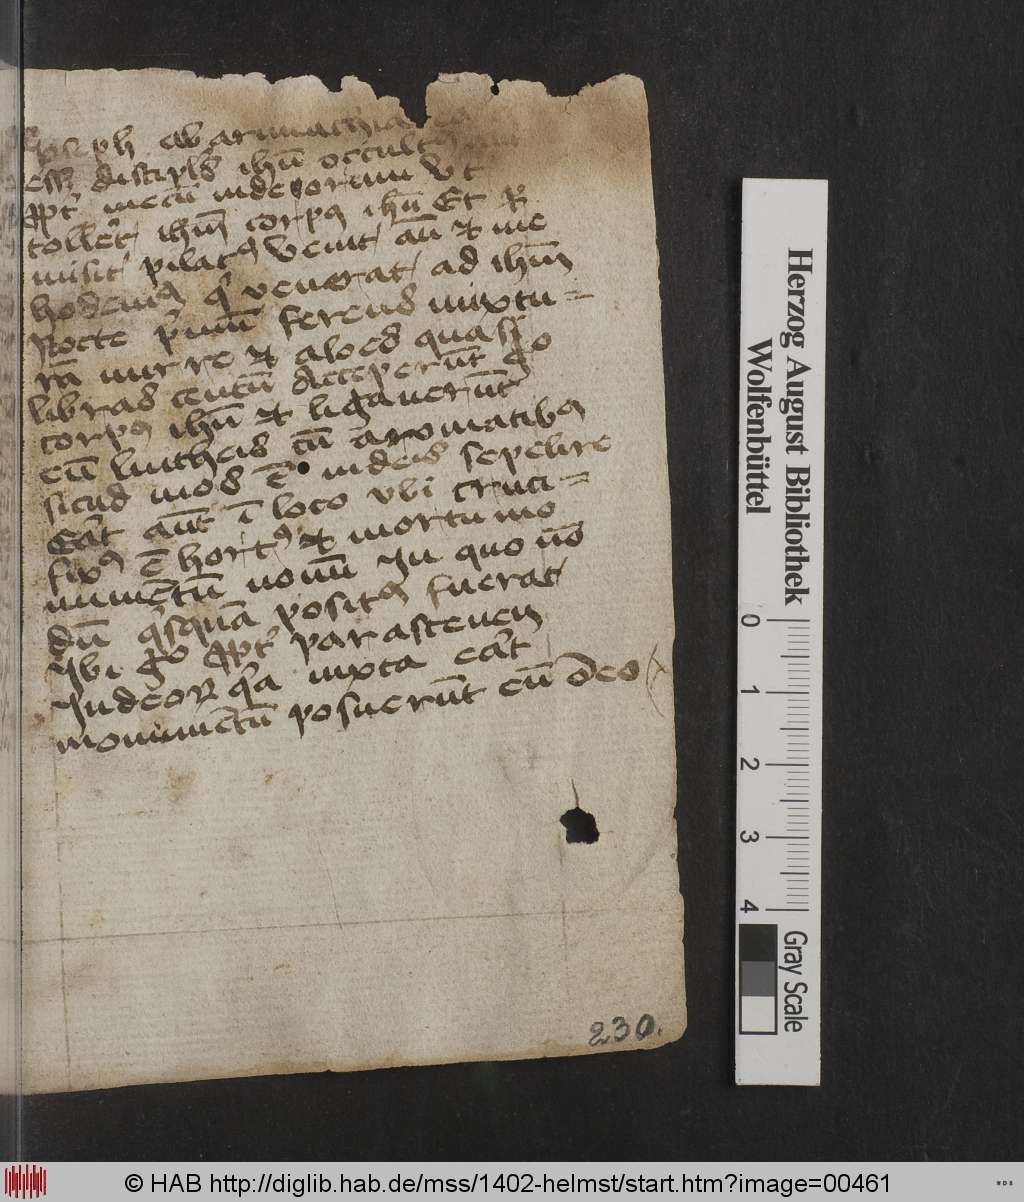 Joseph ab arimathia
esse discipls ihu occult
ppt metu iudeorum vt
tolleret ihm corps ihu Et p̄
misit pilats Venit aut et nic
hodems q venerat ad ihm
Nocte pmu ferens mixtu=
ra mirre et aloes quasi
libras centu Acceperut go
corps ihu et ligauerut
eu lintheis cu aromatibs
sicud mos e iudeis sepelire
Erat aut i loco vbi cruci=
fixs e horts et in ortu mo
numetu nouu Jn quo no
du qsqua posits fuerat
Ybi go ppt parasceuen
Judeor qa iuxta erat
monumetu posuerut eu Deo
230.
Herzog August Bibliothek
Wolfenbüttel
0 1 2 3 4
Gray Scale
© HAB http://diglib.hab.de/mss/1402-helmst/start.htm?image=00461